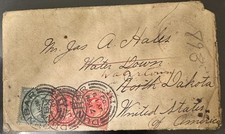 Mr Jas A Hales
Water Town
Watertown
North Dakota
United States
of America